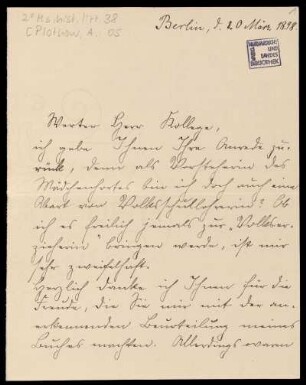 2° Ms. hist. litt. 38
[Plothow, A. 05
Berlin, d. 20 März 1898.
MURHARDSCHE
UND
LANDES
BIBLIOTHEK
Werter Herr Kollege,
ich gebe Ihnen Ihre Anrede zu-
rück, denn als Vorsteherin des
Mädchenhortes bin ich doch auch eine
Art von Volksschullehrerin! Ob
ich es freilich jemals zur „Volkser-
zieherin bringen werde, ist mir
sehr zweifelhaft.
Herzlich danke ich Ihnen für die
Freude, die Sie mir mit der an-
erkennenden Beurteilung meines
Buches machten. Allerdings waren